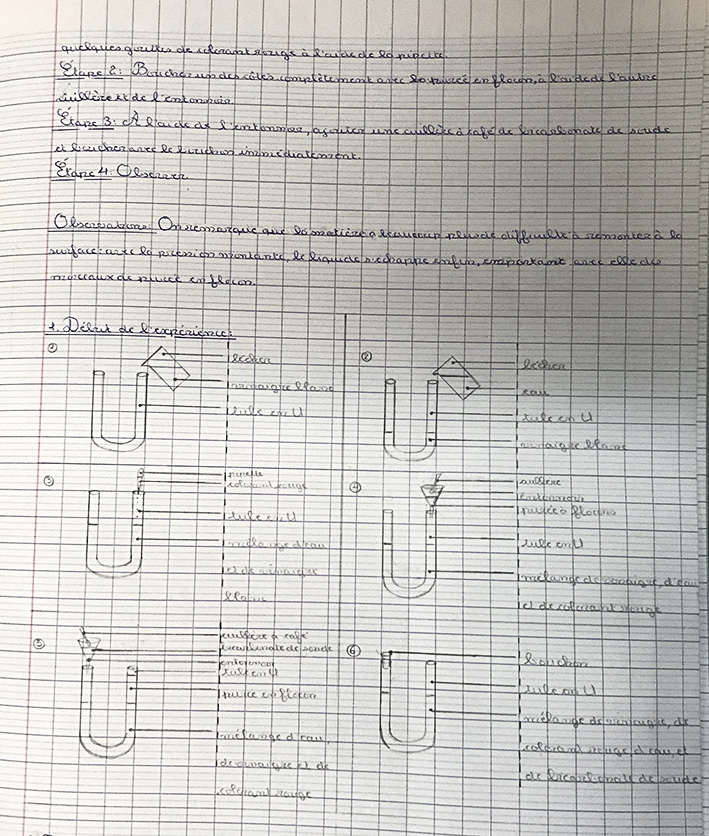 quelques gouttes de colorant rouge à l'aide de la pipette.
Étape 2: Boucher un des côtés complètement avec la purée en flocon, à l'aide de l'autre
cuillère et de l'entonnoir.
Étape 3: À l'aide de l'entonnoir, ajouter une cuillère à café de bicarbonate de soude
et boucher avec le bouchon immédiatement.
Étape 4: Observer.
Observations: On remarque que la matière a beaucoup plus de difficulté à remonter à la
surface: avec la pression montante, le liquide s'échappe enfin, emportant avec elle des
morceaux de purée en flocon.
1. Début de l'expérience:
①
bécher
vinaigre blanc
tube en U
②
bécher
eau
tube en U
vinaigre blanc
③
pipette
colorant rouge
tube en U
mélange d'eau
et de vinaigre
blanc
④
cuillère
entonnoir
purée à flocons
tube en U
mélange de vinaigre, d'eau
et de colorant rouge
⑤
cuillère à café
bicarbonate de soude
entonnoir
tube en U
purée en flocon
mélange d'eau,
de vinaigre et de
colorant rouge
⑥
bouchon
tube en U
mélange de vinaigre, de
colorant rouge, d'eau, et
de bicarbonate de soude